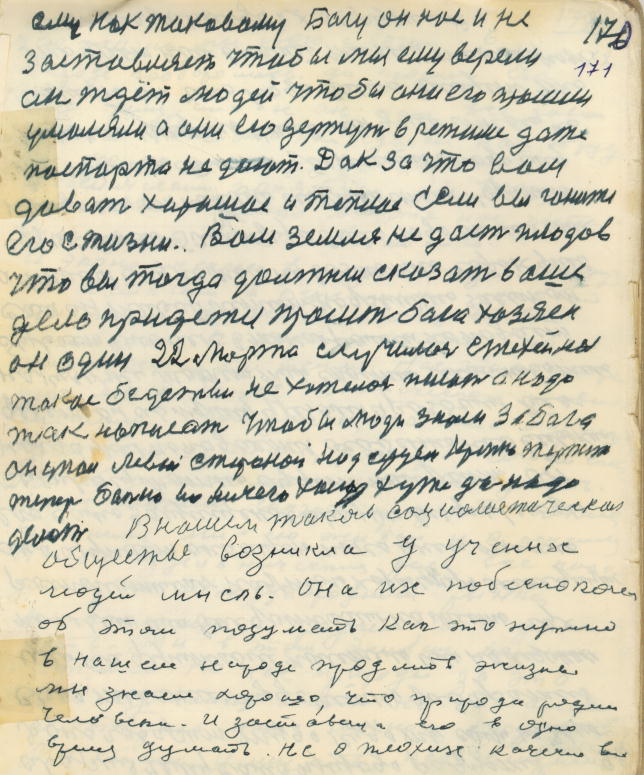 170
ему как таковому Богу он нас и не
171
заставляет чтобы мы ему верели
он ждёт людей чтобы они его
умоляли а они его держут в режиме даже
паспорта не дают. Дак за что вам
давать хорошае и теплае Если вы гоните
его с жизни.. Вам земля не даст плодов
что вы тогда должны сказат ваше
дело придете просит бога хозяен
он один 22 марта случился стехейно
такое не хотелося писать а надо
так написат чтобы люди знали За бога
он упал левой стороной под
тепер больно но ничего хоть хуже да надо
делат В нашем таком социалистическом
обществе возникла у ученых
людей мысль. Она их побеспокоела
об этом подумать как это нужно
в нашем народе продлить жизню
мы знаем хорошо, что природа родила
человека. И заставила его в одно
время думать. не о плохих качествах